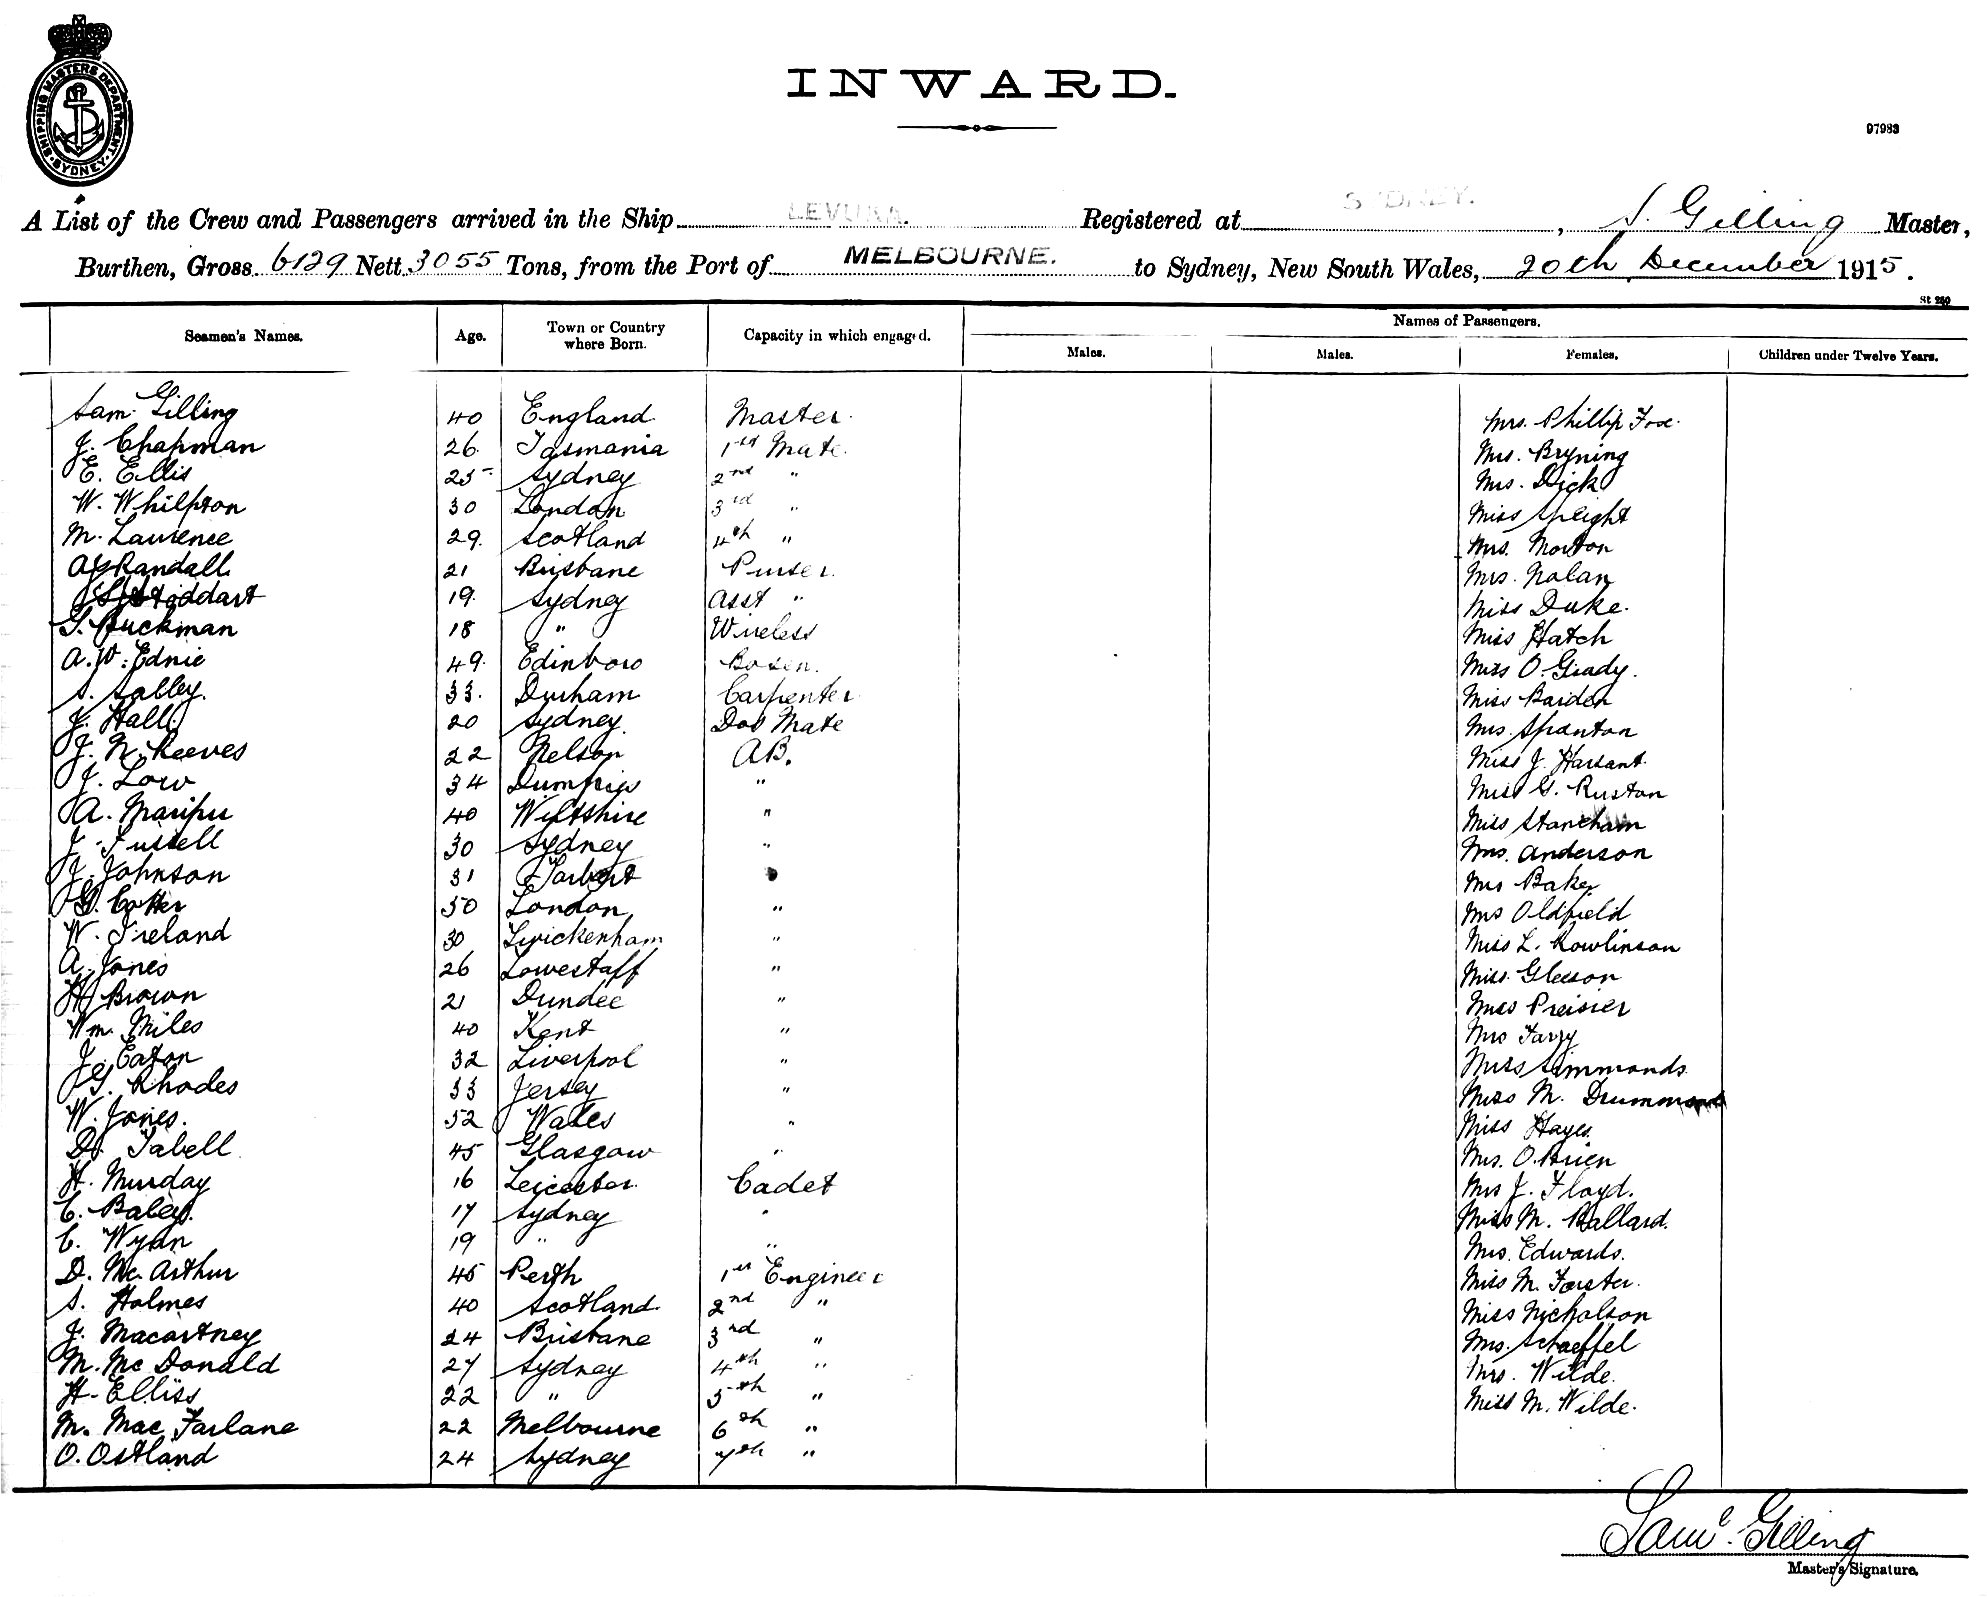 SHIPPING MASTERS DEPARTMENT. SYDNEY
INWARD.
97983
A List of the Crew and Passengers arrived in the Ship LEVUKA. Registered at SYDNEY. , S. Gilling Master,
Burthen, Gross 6129 Nett 3055 Tons, from the Port of MELBOURNE. to Sydney, New South Wales, 20th December 1915.
St 250
Seamen's Names. Age. Town or Country where Born. Capacity in which engaged. Names of Passengers.
Males. Males. Females. Children under Twelve Years.
Sam. Gilling 40 England Master. Mrs. Phillip Fox.
J. Chapman 26. Tasmania 1st Mate. Mrs. Bryning
E. Ellis 25 Sydney 2nd " Mrs. Dick
W. Whilpton 30 London 3rd " Miss Speight
M. Laurence 29. Scotland 4th " Mrs. Morton
Randall 21 Brisbane Purser. Mrs. Nolan
Stoddart 19. Sydney Asst " Miss Duke.
G. Buckman 18 " Wireless Miss Hatch
A. W. Ednie 49. Edinboro Bosen. Miss O. Grady.
S. Salley. 33. Durham Carpenter Miss Barden
J. Hall 20 Sydney. Dos Mate Mrs. Spanton
J. N. Reeves 22 Nelson AB. Miss J. Harsant
J. Low 34 Dumfries " Miss G. Ruston
A. 40 Wiltshire " Miss Stancham
J. Fussell 30 Sydney " Mrs. Anderson
J. Johnson 31 Tarbert Mrs Baker
G. Cotter 50 London " Mrs Oldfield
W. Ireland 30 Twickenham " Miss L. Rowlinson
A. Jones 26 Lowestaff " Miss Gleeson
H. Brown 21 Dundee " Miss Preisier
Wm. Miles 40 Kent " Mrs Farry
J. Eaton 32 Liverpool " Miss Simmonds
G. Rhodes 33 Jersey " Miss M. Drummond
W. Jones. 52 Wales " Miss Hayes
D. Tabell 45 Glasgow " Mrs. O.Brien
H. Munday 16 Leicester Cadet Mrs J. Floyd.
C. Baley. 17 Sydney " Miss M. Ballard.
C. Wyan 19 " " Mrs. Edwards.
D. Mc. Arthur 45 Perth 1st Engineer Miss M. Forster.
S. Holmes 40 Scotland. 2nd " Miss Nicholson
J. Macartney 24 Brisbane 3rd " Mrs. Schaeffel
M. Mc Donald 27 Sydney 4th " Mrs. Wilde.
H. Elliss 22 " 5th " Miss M. Wilde.
M. Mac Farlane 22 Melbourne 6th "
O. Ostland 24 Sydney 7th "
Saml. Gilling
Master's Signature.